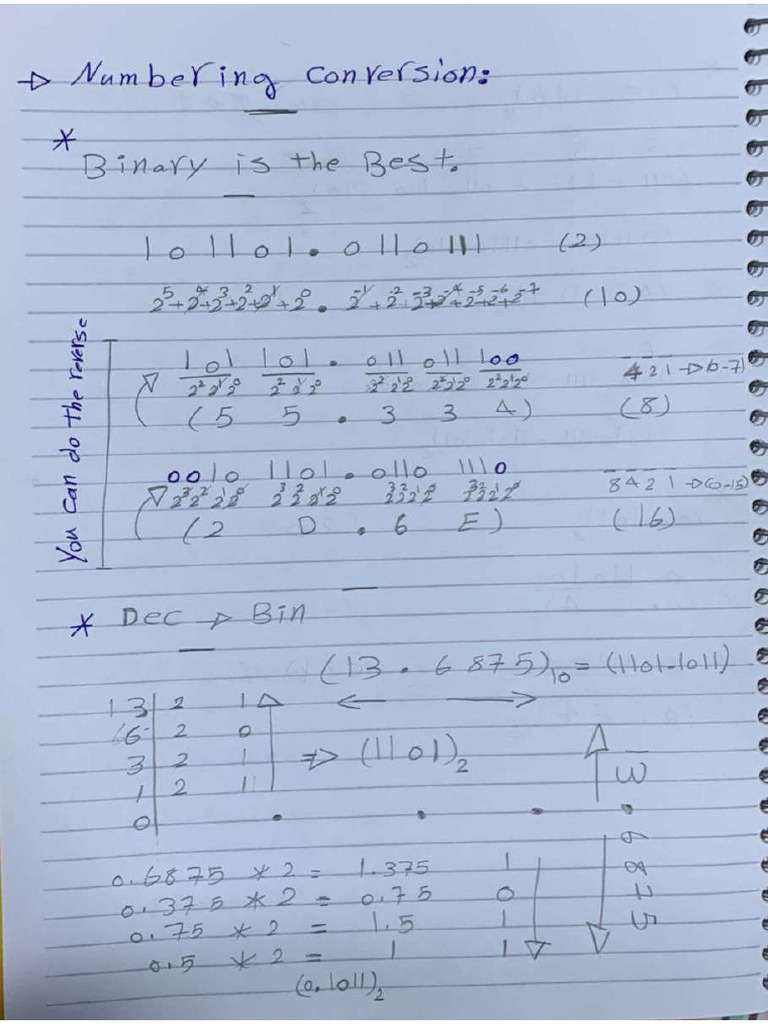 → Numbering conversion:
*
Binary is the Best.
101101.0110111 (2)
2⁵+2⁴+2³+2²+2¹+2⁰ . 2⁻¹+2⁻²+2⁻³+2⁻⁴+2⁻⁵+2⁻⁶+2⁻⁷ (10)
You can do the reverse
101 101 . 011 011 100
2²2¹2⁰ 2²2¹2⁰ 2²2¹2⁰ 2²2¹2⁰ 2²2¹2⁰ 4 2 1 → (0-7)
(5 5 . 3 3 4) (8)
0010 1101 . 0110 1110
2³2²2¹2⁰ 2³2²2¹2⁰ 2³2²2¹2⁰ 2³2²2¹2⁰ 8 4 2 1 → (0-15)
(2 D . 6 E) (16)
* Dec → Bin
(13.6875)₁₀ = (1101.1011)
13 2 1
6 2 0
3 2 1 ⇒ (1101)₂
1 2 1
0
6875
0.6875 * 2 = 1.375 1
0.375 * 2 = 0.75 0
0.75 * 2 = 1.5 1
0.5 * 2 = 1 1
(0.1011)₂